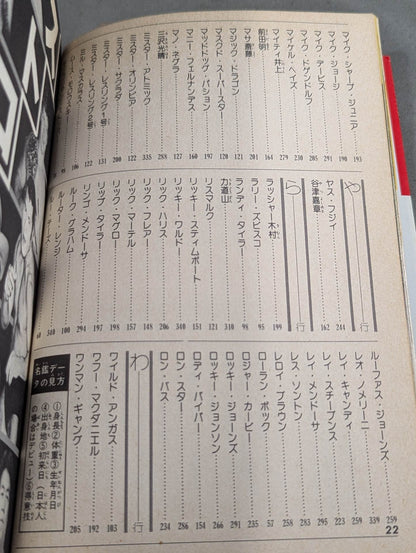 マイク・シャープ・ジュニア 193
マイク・ジョージ 190
マイク・デービス 291
マイク・ドゲンドルフ
マイケル・ヘイズ 230
マイティ井上 279
前田明
マサ斎藤 161
マジック・ドラゴン 201
マスクド・スーパースター 120
マッドドッグ・バション 197
マニー・フェルナンデス 160
マン・ネグラ 127
三沢光晴 288
ミスター・アトミック 335
ミスター・オリンピア 132
ミスター・サクラダ 200
ミスター・レスリング1号 131
ミスター・レスリング2号 122
ミル・マスカラス 106
や行
ヤス・フジイ 244
谷津嘉章 162
ら行
ラッシャー木村 199
ラリー・ズビスコ 95
ランディ・タイラー 98
力道山 340
リスマルク 151
リッキー・スティムボート 121
リッキー・ワルド 314
リック・ハリス 206
リック・フレアー 148
リック・マーテル 157
リック・マグロー 198
リップ・タイラー 197
リンゴ・メンドーサ 294
ルーク・グラハム 100
ルーター・レンジ 340
ルーファス・ジョーンズ 259
レオ・ノメリーニ 339
レイ・キャンディ 259
レイ・スチーブンス 267
レイ・メンドーサ 295
レス・ソントン 234
レロイ・ブラウン 57
ローラン・ボック 257
ロジャー・カービー 291
ロッキー・ジョーンズ 259
ロッキー・ジョンソン 266
ロディ・パイパー 154
ロン・スター 286
ロン・バス 234
わ行
ワイルド・アンガス 103
ワフー・マクダニエル 192
ワンマン・ギャング 205
名鑑デー
タの見方
①身長②体重③生年月日
④出身地⑤初来日（日本人
の場合はデビュー）⑥得意技
22